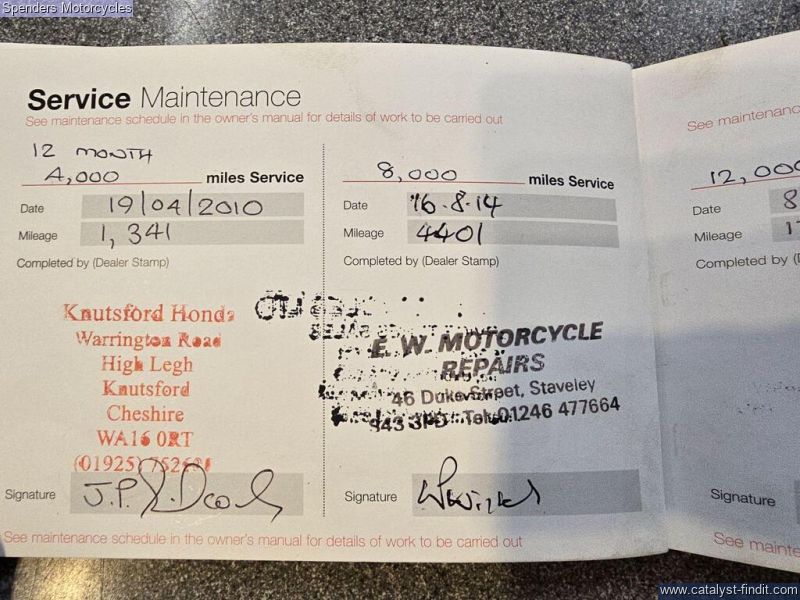 Spenders Motorcycles
Service Maintenance
See maintenance schedule in the owner's manual for details of work to be carried out
12 MONTH
4,000 miles Service
Date 19/04/2010
Mileage 1,341
Completed by (Dealer Stamp)
Knutsford Honda
Warrington Road
High Legh
Knutsford
Cheshire
WA16 0RT
(01925)
Signature
8,000 miles Service
Date 16.8.14
Mileage 4401
Completed by (Dealer Stamp)
E. W. MOTORCYCLE
REPAIRS
46 Duke Street, Staveley
S43 3PD Tel: 01246 477664
Signature
See maintenance schedule in the owner's manual for details of work to be carried out
See maintenanc
12,000
Date 8
Mileage
Completed by (D
Signature
See mainte
www.catalyst-findit.com